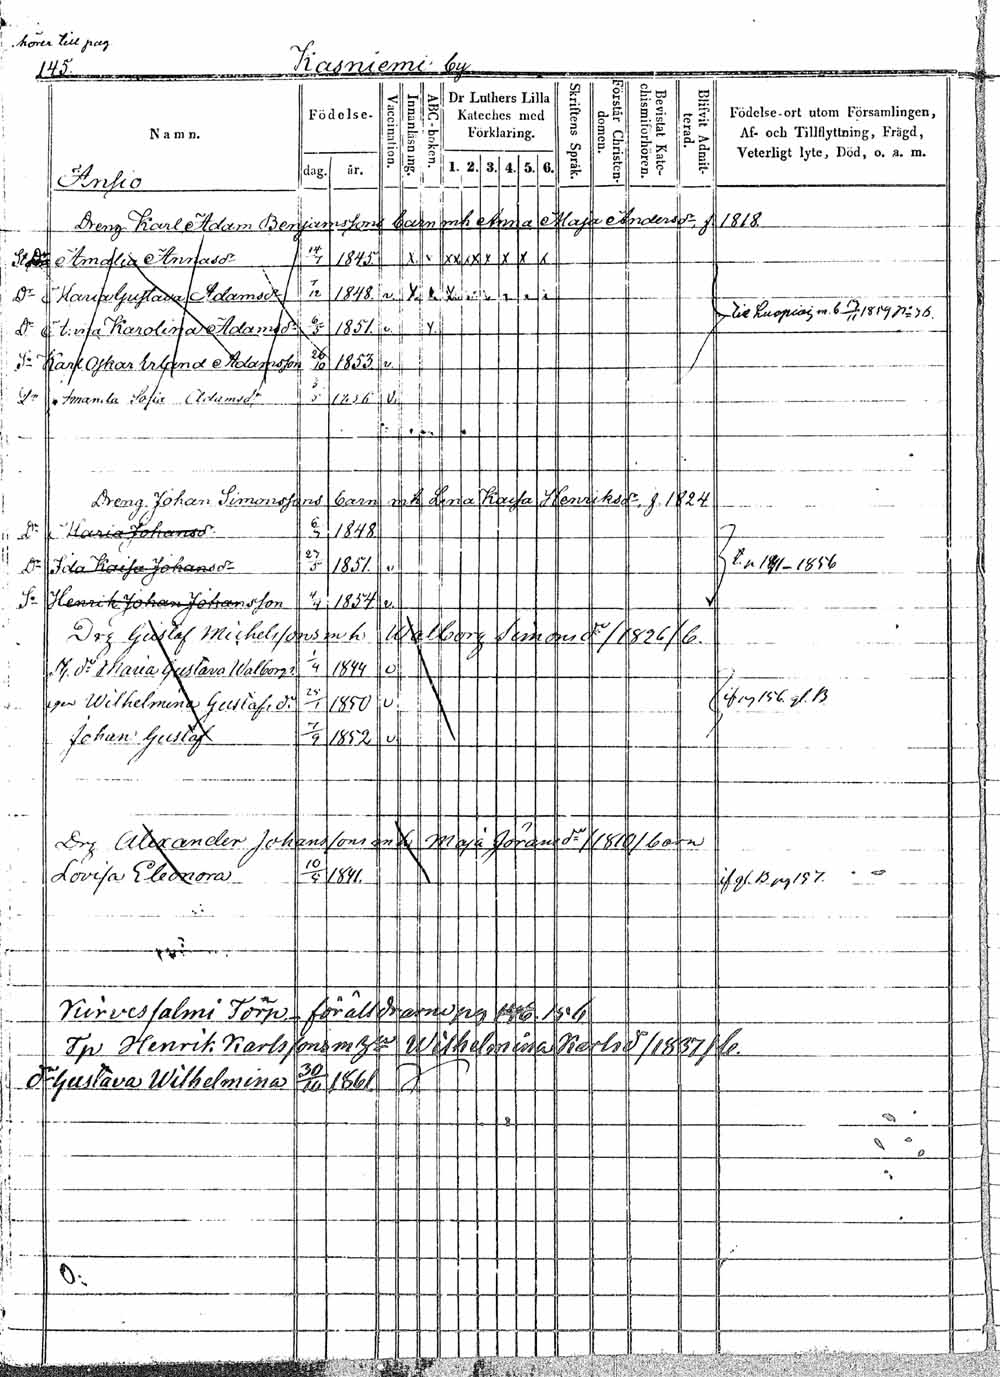 hörer till pag
145.
Kasniemi by
Namn.
Födelse-
dag.
år.
Vaccination.
Innanläsning.
ABC-boken.
Dr Luthers Lilla
Kateches med
Förklaring.
1. 2. 3. 4. 5. 6.
Skriftens Språk.
Förstår Christen-
domen.
Bevistat Kate-
chismiförhören.
Blifvit Admit-
terad.
Födelse-ort utom Församlingen,
Af- och Tillflyttning, Frägd,
Veterligt lyte, Död, o. a. m.
Ansio
Dreng Karl Adam Benjamssons barn mh Anna Maja Andersdr, f. 1818.
Amalia Annasdr 1845 x x x x x x x x
Dr Maria Gustava Adamsdr 7/12 1848
Dr Karolina Adamsdr 6/5 1851.
Sn Karl Oskar Erland Adamsson 26/10 1853
Dr Amanda Sofia Adamsdr 1856
Dreng Johan Simonssons barn mh Lena Kaisa Henriksdr, f. 1824
Dr Maria Johansdr 1848
Dr Ida Kaisa Johansdr 27/5 1851.
1856
Sn Henrik Johan Johansson 1854
Drg Gustaf Michelssons mh Walborg Simonsdr /1826/ b.
dr Maria Gustava Walborgs 1/4 1844
Wilhelmina Gustafsdr 25/1 1850
pg 156. gl. B
Johan Gustaf 7/9 1852
Drg Alexander Johanssons mh Maja Jöransdr /1810/ barn
Lovisa Eleonora 1841.
gl. B pg 157.
Kirvessalmi Torp föräldrarne pg 156
Tp Henrik Karlssons m Wilhelmina Karlsdr /1837/ b.
dr Gustava Wilhelmina 30/10 1861